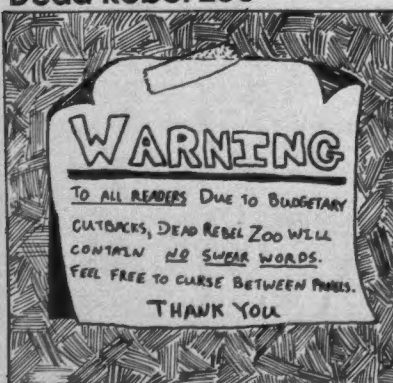 Dead Rebel Zoo
WARNING
TO ALL READERS DUE TO BUDGETARY
CUTBACKS, DEAD REBEL ZOO WILL
CONTAIN NO SWEAR WORDS.
FEEL FREE TO CURSE BETWEEN PANELS.
THANK YOU